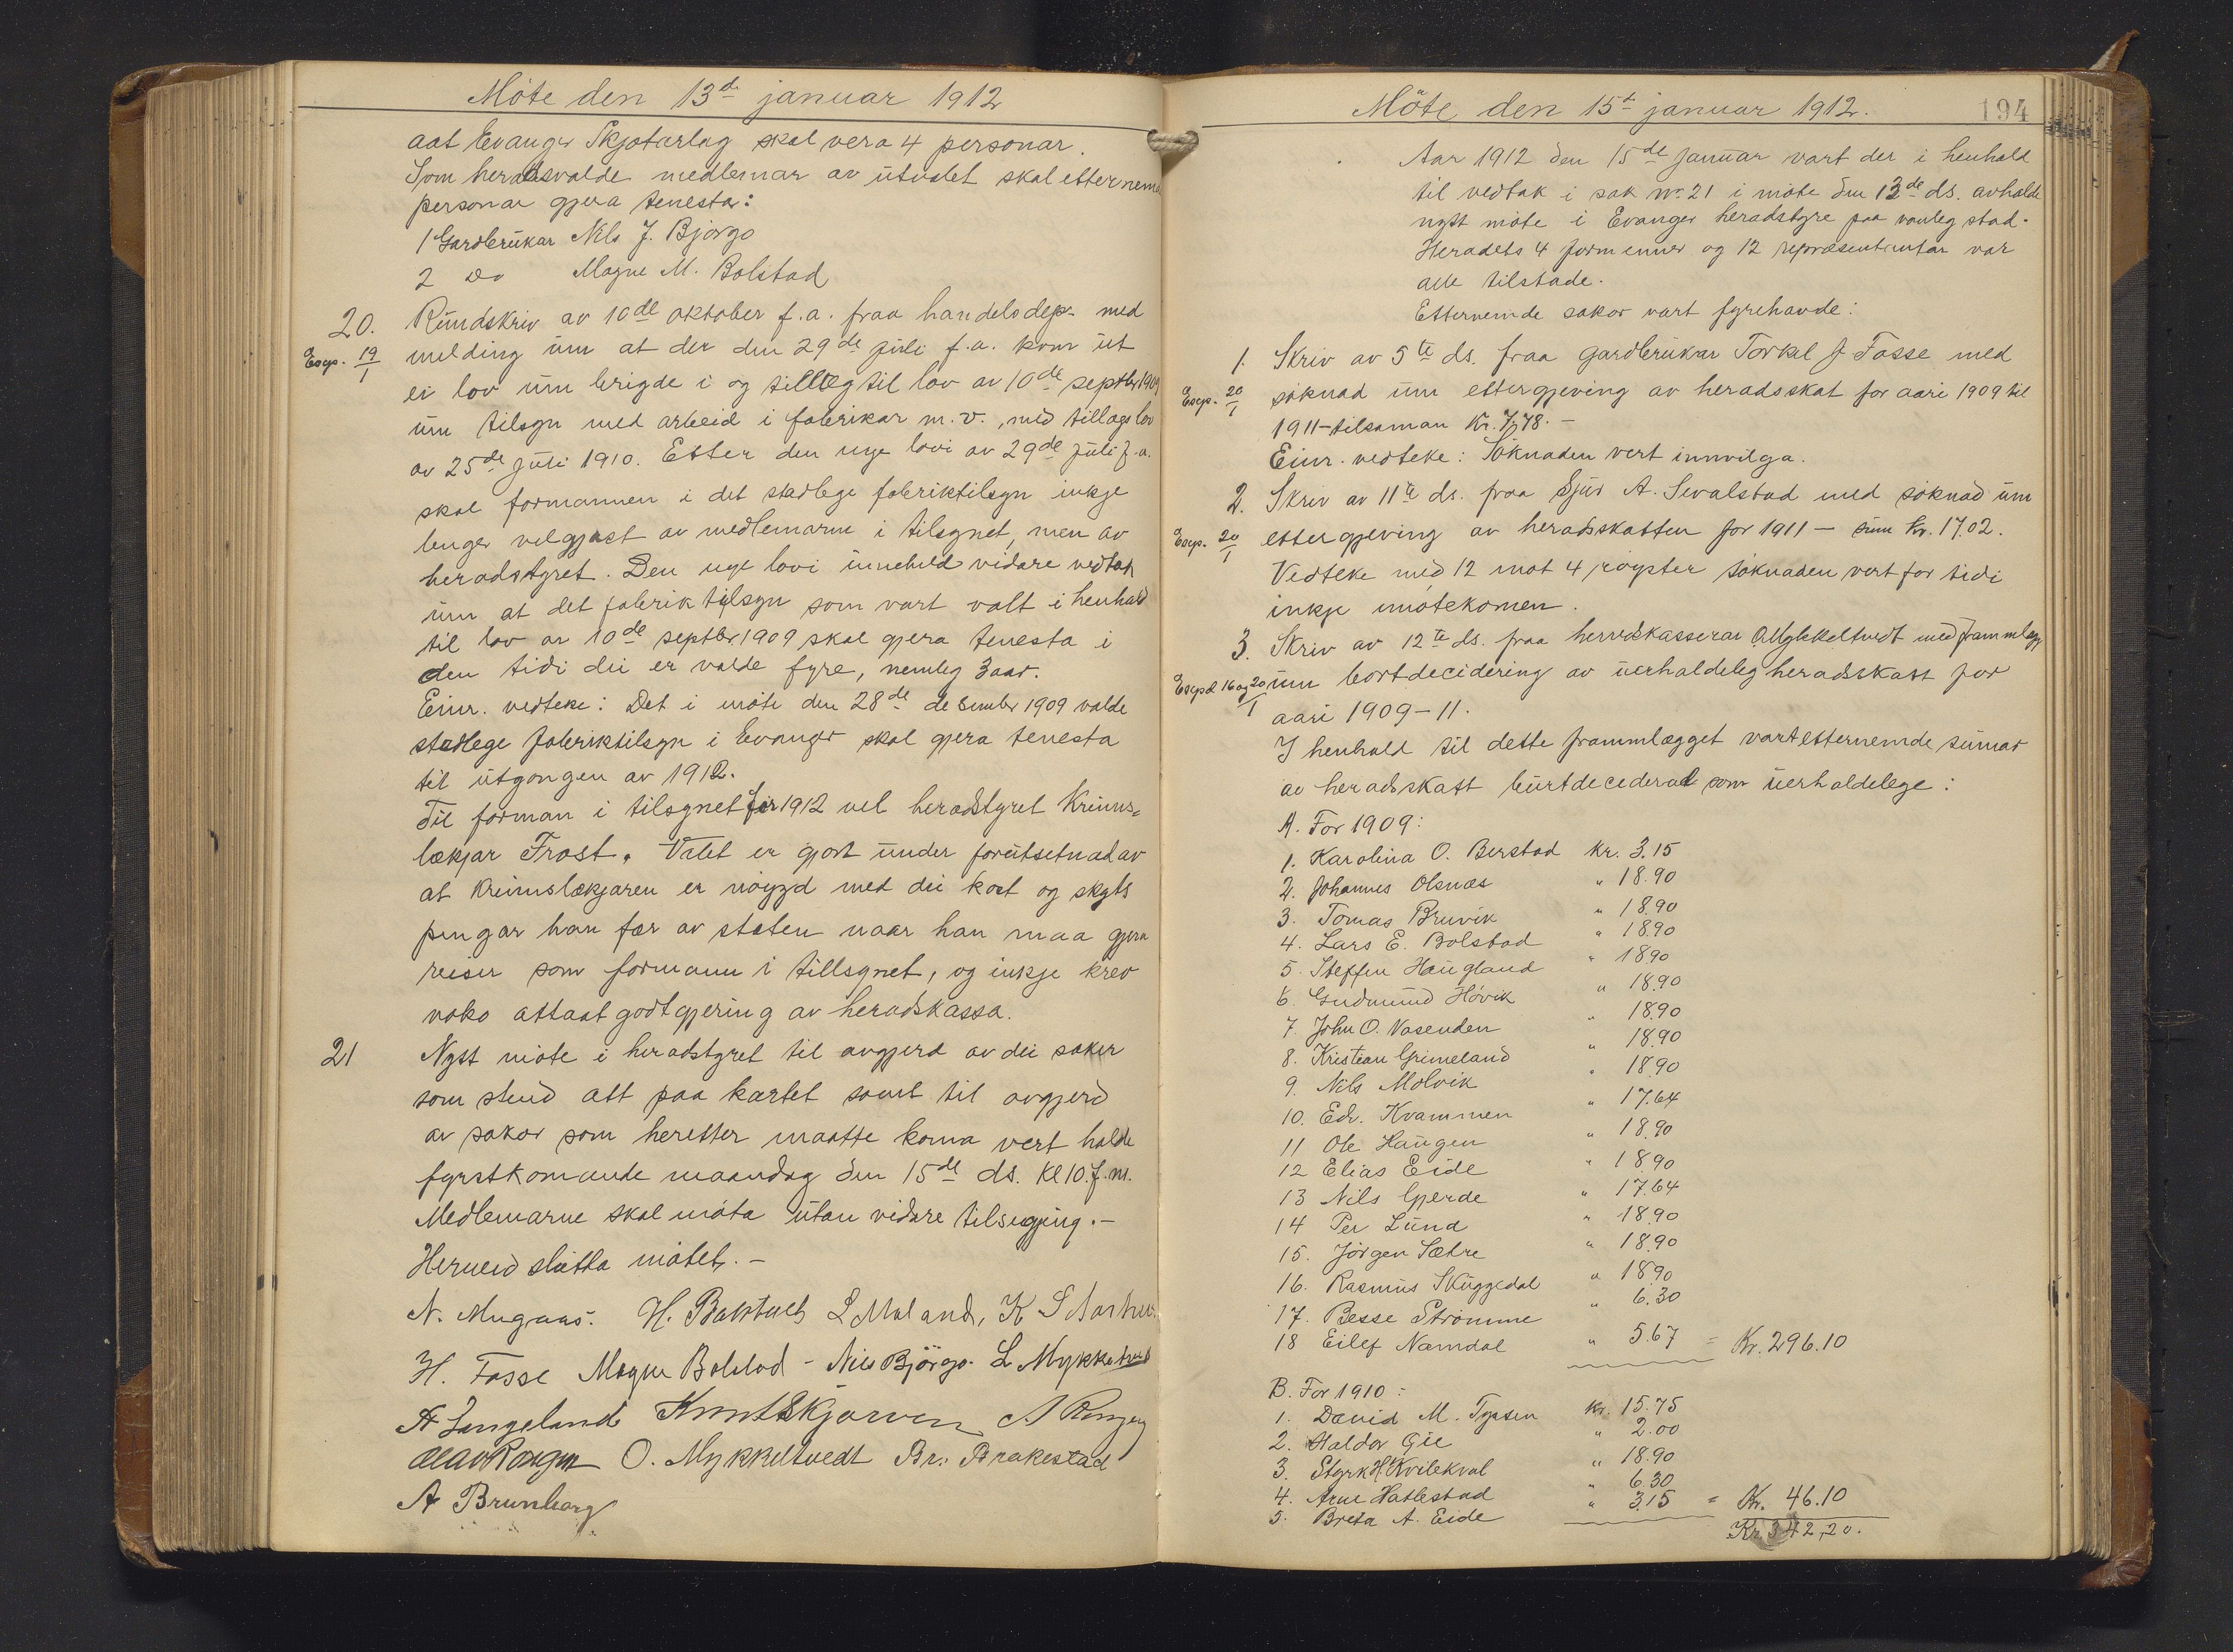 Möte den 13de januar 1912
aat Evanger Skjotarlag skal vera 4 personar.
Som heradsvalde medlemar av utvalet skal etternemn
personar gjera tenesta:
1 Gardbrukar Nils J. Bjørgo
2 do Magne M. Bolstad
20. Rundskriv av 10de oktober f.a. fraa handelsdep. med
Exp. 19/1 melding um at der den 29de juli f.a. kom ut
ei lov um brigde i og tillæg til lov av 10de septbr 1909
um tilsyn med arbeid i fabrikar m.v., med tillagslov
av 25de Juli 1910. Etter den nye lovi av 29de Juli f.a.
skal formannen i det stadlege fabriktilsyn inkje
lenger velgjast av medlemarne i tilsynet, men av
heradstyret. Den nye lovi inneheld vidare vedtak
um at det fabriktilsyn som vart valt i henhald
til lov av 10de septbr 1909 skal gjera tenesta i
den tidi dei er valde fyre, nemleg 3 aar.
Einr. vedteke: Det i møte den 28de desember 1909 valde
stadlege fabriktilsyn i Evanger skal gjera tenesta
til utgongen av 1912.
Til forman i tilsynet for 1912 vel heradstyret Krinns-
lækjar Frost. Valet er gjort under forutsetnad av
at Krinnslækjaren er nøygd med dei kost og skyts
pengar han fær av staten naar han maa gjera
reiser som formann i tillsynet, og inkje krev
noko attaat godtgjering av heradskassa.
21 Nytt møte i heradstyret til avgjerd av dei saker
som stend att paa kartet samt til avgjerd
av sakor som heretter maatte koma vert halde
fyrstkomande maandag den 15de ds. Kl 10. f.m.
Medlemarne skal møta utan vidare tilsegjing.-
Hermed slutta møtet.-
N. Mugaas. H. Baktveit L Maland, K S Aarhus
H. Fasse Magne Bolstad - Nils Bjørgo. L Mykkeltvedt
A Langeland Knut Skjerven A Rongen
Olav Rongen O. Mykkeltvedt Br. Brakestad
A Brunborg
Möte den 15de januar 1912. 194
Aar 1912 den 15de Januar vart der i henhald
til vedtak i sak no. 21 i møte den 13de ds. avhalde
nytt møte i Evanger heradstyre paa vanleg stad.
Heradets 4 formenner og 12 repræsentantar var
alle tilstade.
Etternemde sakor vart fyrehavde:
1. Skriv av 5te ds. fraa gardbrukar Torkel J Fasse med
Exp. 20/1 søknad um ettergjeving av heradsskat for aari 1909 til
1911 - tilsaman Kr. 7,78. -
Einr. vedteke: Søknaden vert innvilga.
2. Skriv av 11te ds. fraa Sjur A. Sevalstad med søknad um
Exp. 20/1 ettergjeving av heradsskatten for 1911 - sum kr. 17.02.
Vedteke med 12 mot 4 røyster søknaden vert for tidi
inkje imøtekomen.
3. Skriv av 12te ds. fraa herredskasserar O Mykkeltvedt med framlegg
Expd 16 og 20/1 um bortdecidering av uerhaldeleg heradskatt for
aari 1909-11.
I henhald til dette frammlægget vart etternemde sumar
av heradsskatt burtdecederad som uerhaldelege:
A. For 1909:
1. Karolina O. Berstad kr. 3.15
2. Johannes Olsnæs " 18.90
3. Tomas Bruvik " 18.90
4. Lars E. Bolstad " 18.90
5. Steffen Haugland " 18.90
6. Gudmund Høvik " 18.90
7. John O. Vasenden " 18.90
8. Kristian Grimeland " 18.90
9. Nils Molvik " 18.90
10. Edv. Kvammen " 17.64
11 Ole Haugen " 18.90
12 Elias Eide " 18.90
13 Nils Gjerde " 17.64
14 Per Lund " 18.90
15. Jørgen Sætre " 18.90
16. Rasmus Skuggedal " 18.90
17. Besse Strømme " 6.30
18 Eilef Namdal " 5.67 = Kr. 296.10
B. For 1910:
1. David M. Tyssen kr. 15.75
2. Haldor Gil " 2.00
3. Styrk H. Kvilekval " 18.90
4. Arne Hatlestad " 6.30
5. Breta A. Eide " 3.15 = Kr. 46.10
Kr. 342,20.